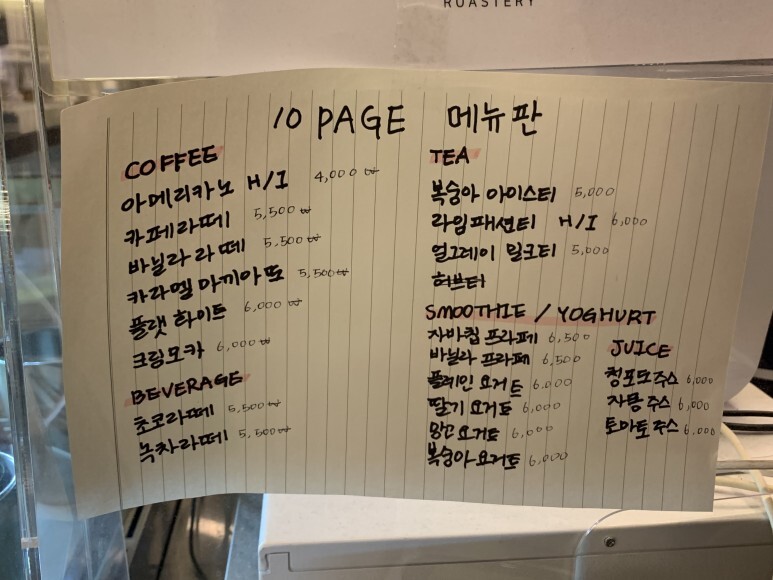 ROASTERY
10 PAGE 메뉴판
COFFEE
아메리카노 H/I 4,000 ₩
카페라떼 5,500 ₩
바닐라 라떼 5,500 ₩
카라멜 마끼아또 5,500 ₩
플랫 화이트 6,000 ₩
크림모카 6,000 ₩
BEVERAGE
초코라떼 5,500 ₩
녹차라떼 5,500 ₩
TEA
복숭아 아이스티 5,000
라임패션티 H/I 6,000
얼그레이 밀크티 5,000
허브티
SMOOTHIE / YOGHURT
자바칩 프라페 6,500
바닐라 프라페 6,500
플레인 요거트 6.000
딸기 요거트 6,000
망고 요거트 6,000
복숭아 요거트 6,000
JUICE
청포도주스 6,000
자몽주스 6,000
토마토주스 6.000